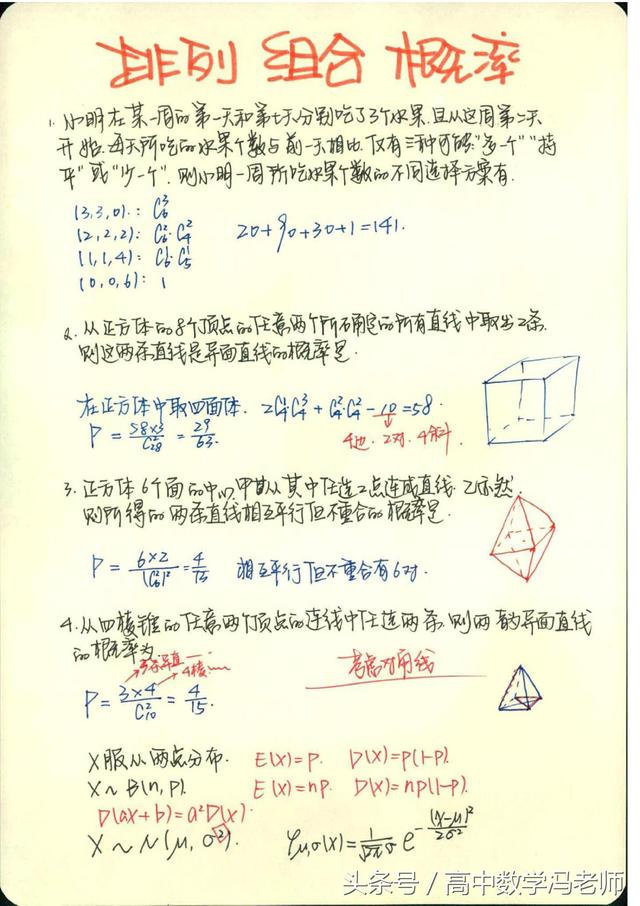 排列 组合 概率
1. 小明在某一周的第一天和第七天分别吃了3个水果,且从这周第二天
开始,每天所吃的水果个数与前一天相比,仅有三种可能:“多一个”“持
平”或“少一个”,则小明一周所吃水果个数的不同选择方案有.
(3,3,0): C₆³
(2,2,2): C₆²·C₄² 20+90+30+1=141.
(1,1,4): C₆¹·C₅¹
(0,0,6): 1
2. 从正方体的8个顶点的任意两个所确定的所有直线中取出2条.
则这两条直线是异面直线的概率是.
在正方体中取四面体. 2C₄¹C₄³ + C₄²·C₄² - 10 = 58.
P = 58×3/C₂₈² = 29/63. 4地. 2对. 4斜.
3. 正方体6个面的中心,甲从其中任选2点连成直线,乙亦然,
则所得的两条直线相互平行但不重合的概率是.
P = 6×2/(C₆²)² = 4/75 相互平行但不重合有6对.
4. 从四棱锥的任意两个顶点的连线中任选两条,则两者为异面直线
的概率为
P = 3×4/C₁₀² = 4/15. 考虑对角线
X服从两点分布. E(X)=p. D(X)=p(1-p).
X~B(n,p). E(X)=np. D(X)=np(1-p).
D(aX+b)=a²D(X).
X~N(μ,σ²). φμ,σ(x)=1/√2πσ e^-(x-μ)²/2σ²
头条号 / 高中数学冯老师